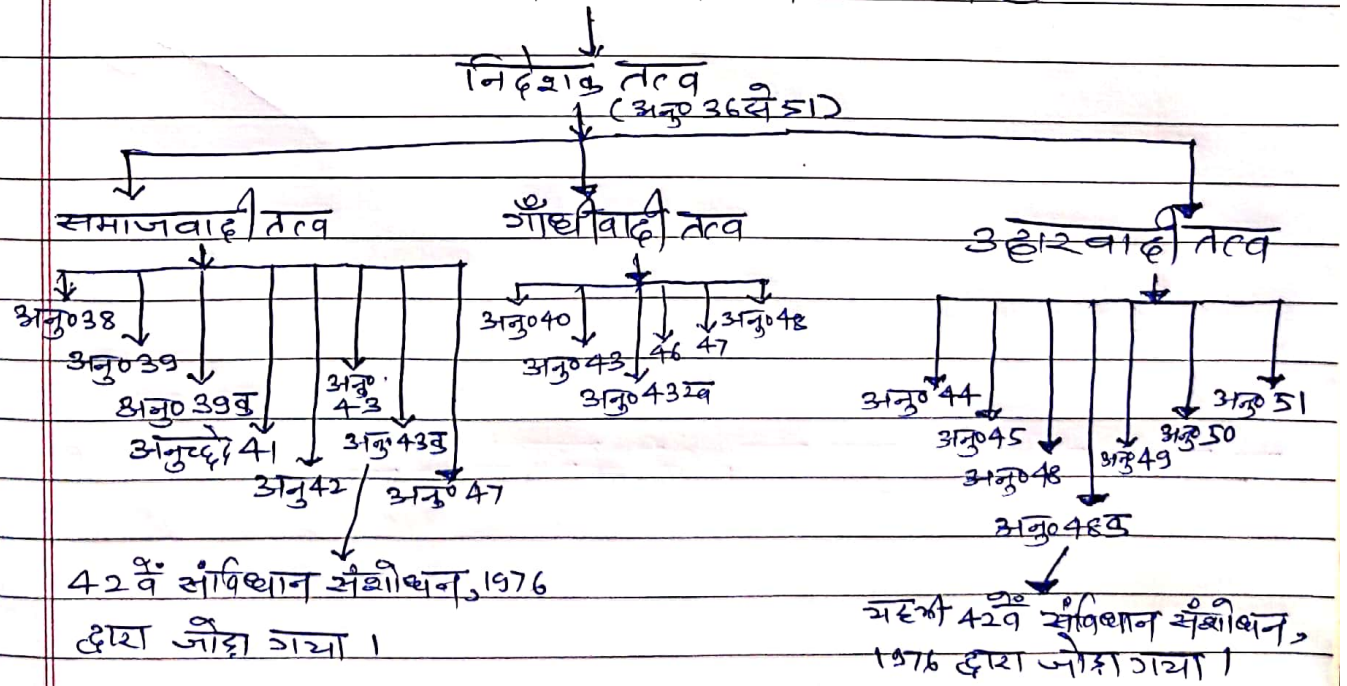 निदेशक तत्व
(अनु० 36 से 51)
समाजवादी तत्व
गाँधीवादी तत्व
उदारवादी तत्व
अनु० 38
अनु० 39
अनु० 39क
अनुच्छेद 41
अनु 42
अनु० 43
अनु० 43क
अनु० 47
42वें संविधान संशोधन, 1976
द्वारा जोड़ा गया ।
अनु० 40
अनु० 43
अनु० 43ख
46
47
अनु० 48
अनु० 44
अनु० 45
अनु० 48
अनु० 48क
अनु० 49
अनु० 50
अनु० 51
यह भी 42वें संविधान संशोधन,
1976 द्वारा जोड़ा गया ।